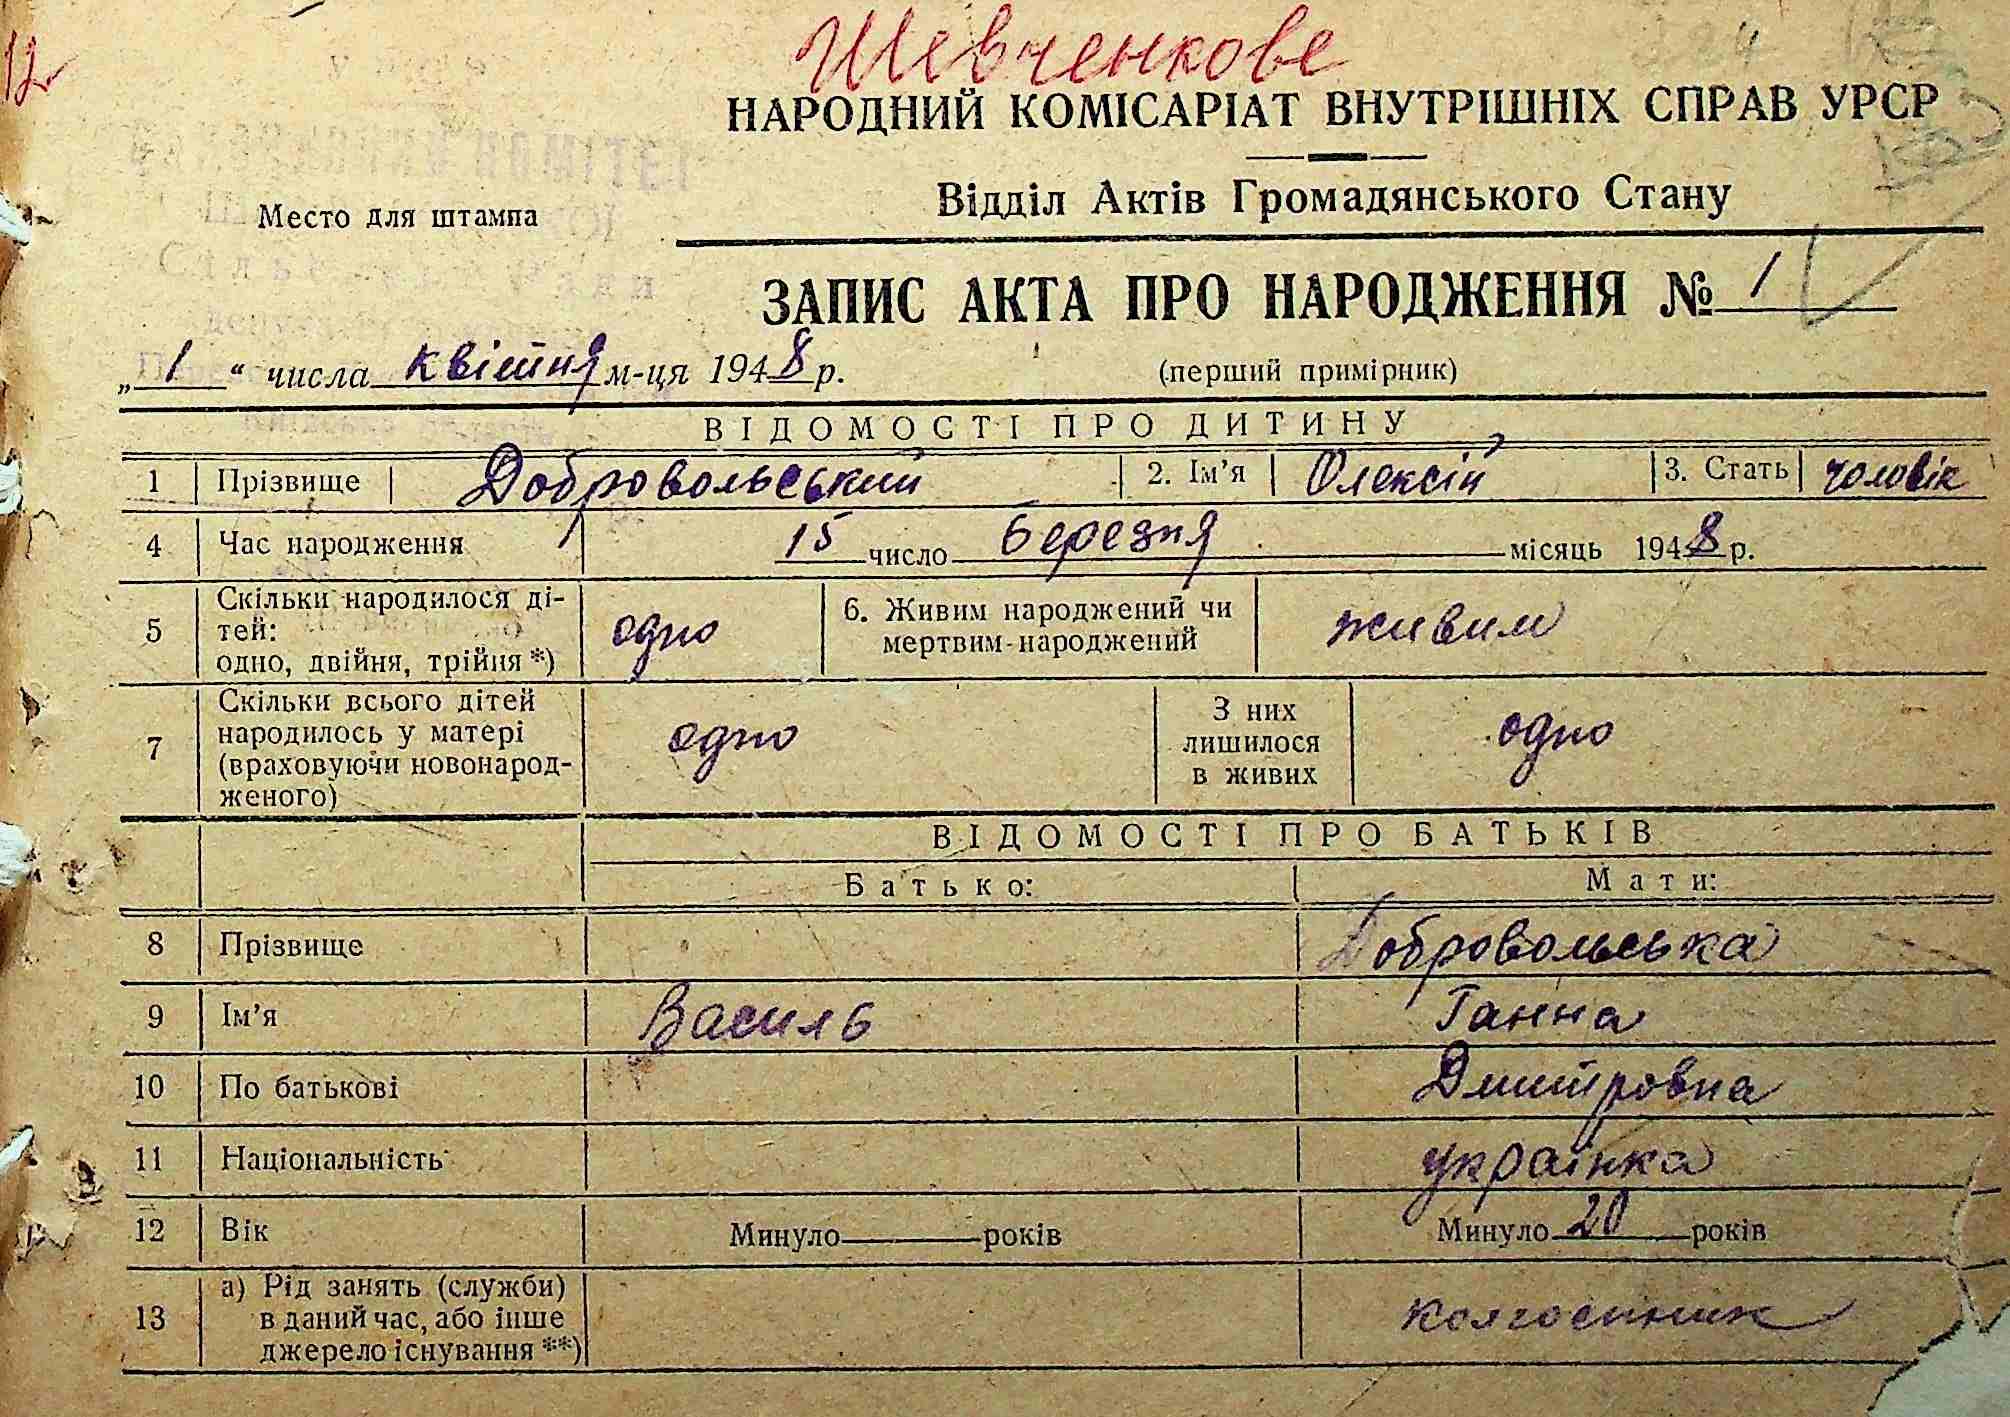 Шевченкове
12
НАРОДНИЙ КОМІСАРІАТ ВНУТРІШНІХ СПРАВ УРСР
Відділ Актів Громадянського Стану
КОМІТЕТ
Место для штампа
ЗАПИС АКТА ПРО НАРОДЖЕННЯ № 1
„1“ числа квітня м-ця 1948 р.
(перший примірник)
ВІДОМОСТІ ПРО ДИТИНУ
1 Прізвище Добровольський 2. Ім'я Олексій 3. Стать чоловік
4 Час народження 15 число березня місяць 1948 р.
5 Скільки народилося ді-
тей:
одно, двійня, трійня *) одно
6. Живим народжений чи
мертвим-народжений живим
7 Скільки всього дітей
народилось у матері
(враховуючи новонарод-
женого) одно
З них
лишилося
в живих одно
ВІДОМОСТІ ПРО БАТЬКІВ
Батько: Мати:
8 Прізвище Добровольська
9 Ім'я Василь Ганна
10 По батькові Дмитровна
11 Національність українка
12 Вік Минуло років Минуло 20 років
13 а) Рід занять (служби)
в даний час, або інше
джерело існування **) колгоспник